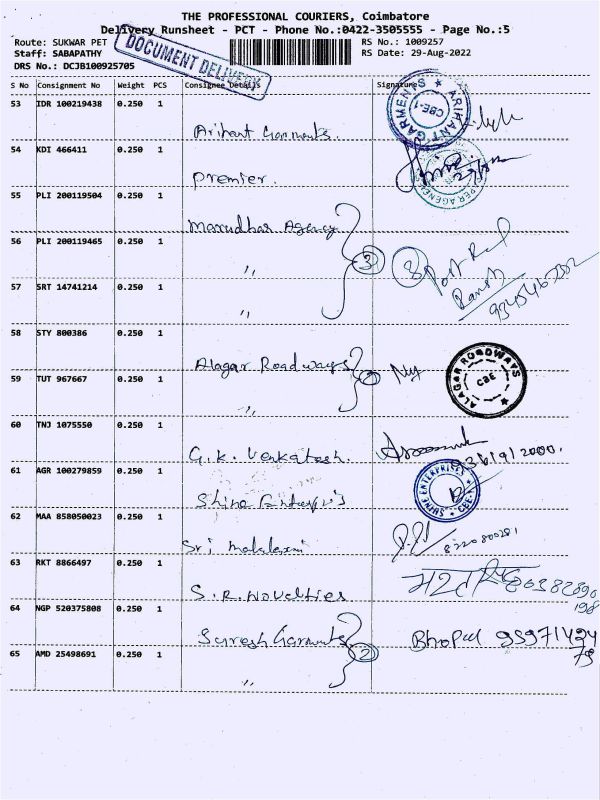 THE PROFESSIONAL COURIERS, Coimbatore
Delivery Runsheet - PCT - Phone No.:0422-3505555 - Page No.:5
Route: SUKWAR PET
RS No.: 1009257
Staff: SABAPATHY
RS Date: 29-Aug-2022
DRS No.: DCJB100925705
DOCUMENT DELIVERY
S No Consignment No Weight PCS Consignee Details Signature
53 IDR 100219438 0.250 1
Arihant Garments.
ARIHANT GARMENTS CBE-1
54 KDI 466411 0.250 1
Premier.
55 PLI 200119504 0.250 1
Marudhar Agency
56 PLI 200119465 0.250 1
〃 3 3
57 SRT 14741214 0.250 1
〃
58 STY 800386 0.250 1
Alagar Roadways
59 TUT 967667 0.250 1
〃 2
ALAGAR ROADWAYS CBE
60 TNJ 1075550 0.250 1
G.K. Venkatesh.
61 AGR 100279859 0.250 1
Shine
SHINE ENTERPRISES CBE-1
62 MAA 858050023 0.250 1
Sri
63 RKT 8866497 0.250 1
S.R. Novelties
64 NGP 520375808 0.250 1
Suresh Garments
65 AMD 25498691 0.250 1
〃 2
Bhopal